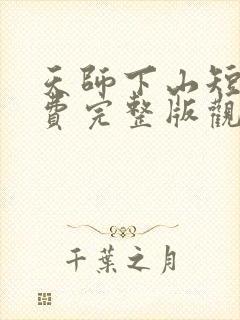 天師下山短
費完整版觀
千葉之月